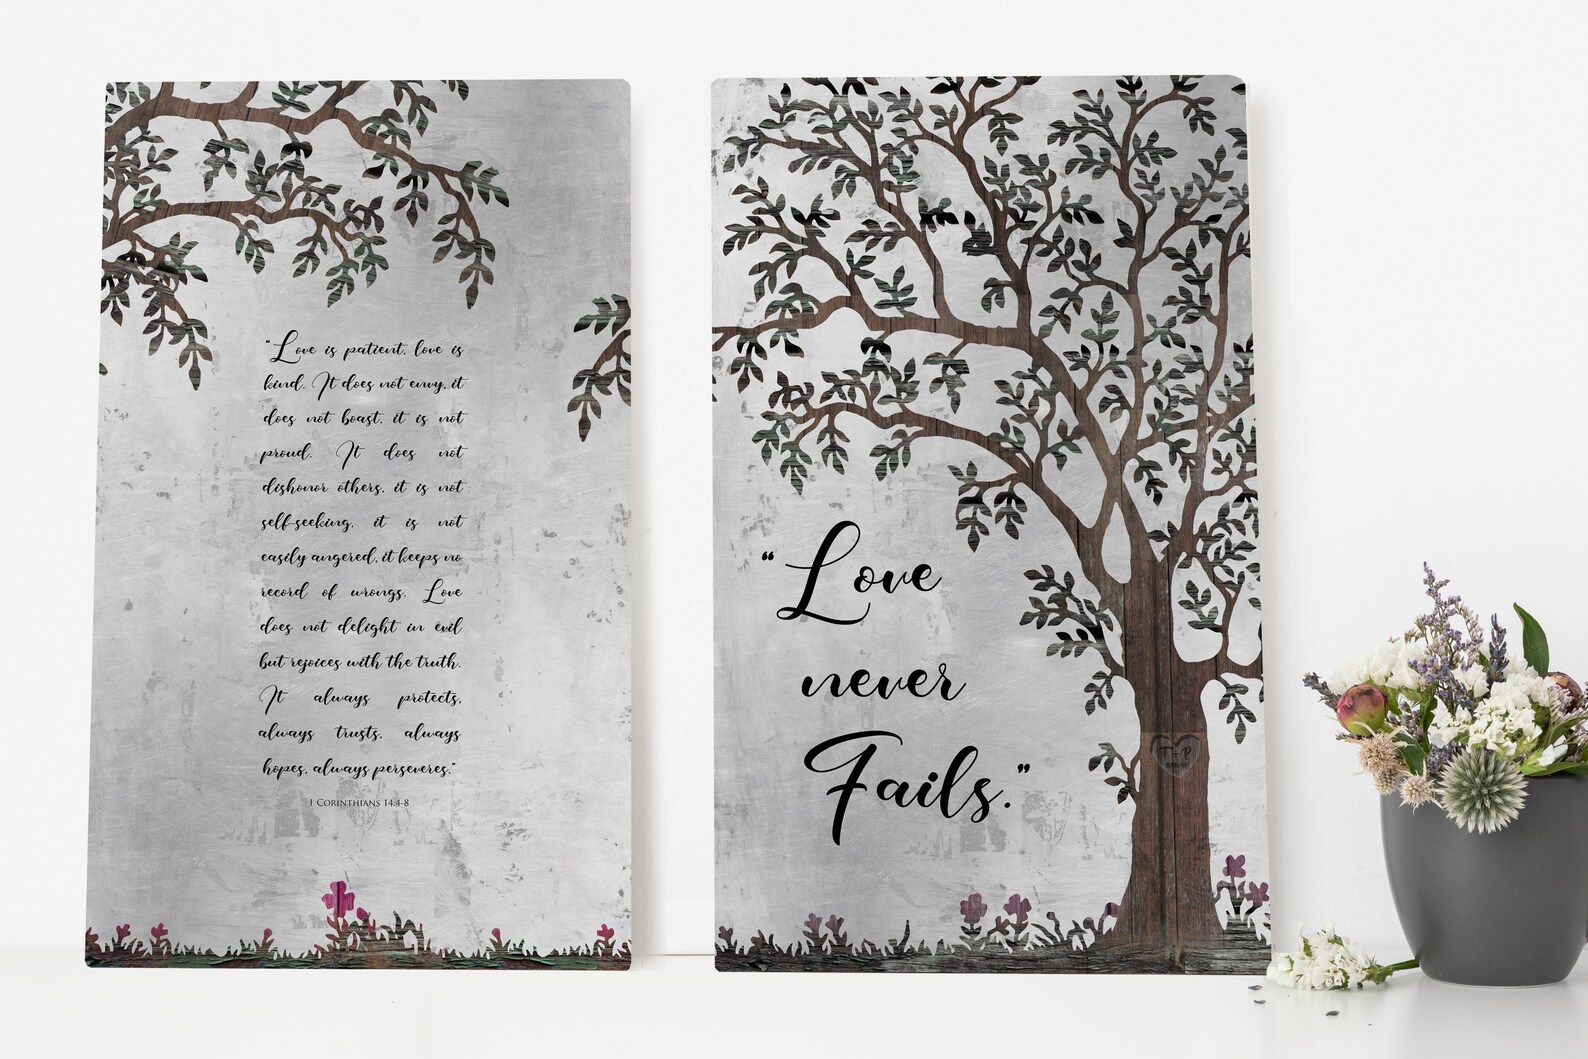 "Love is patient, love is
kind. It does not envy, it
does not boast, it is not
proud. It does not
dishonor others, it is not
self-seeking, it is not
easily angered, it keeps no
record of wrongs. Love
does not delight in evil
but rejoices with the truth.
It always protects,
always trusts, always
hopes, always perseveres."
1 Corinthians 14:4-8
"Love
never
Fails."
T-P